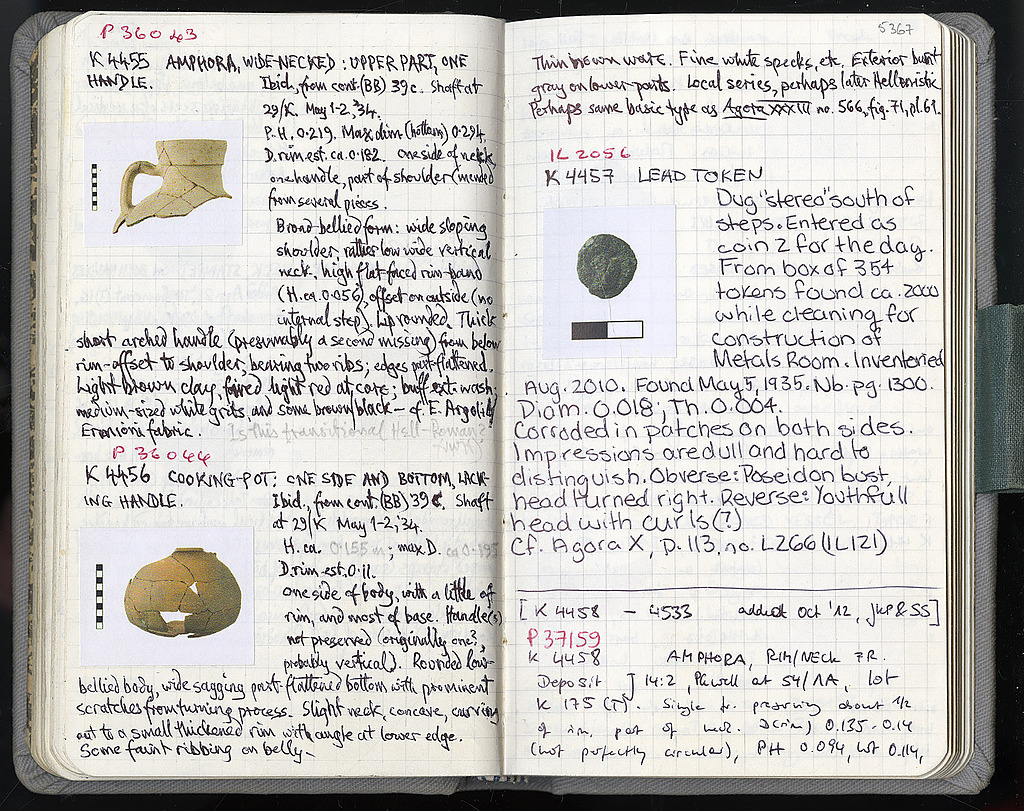 P 36043
K 4455 AMPHORA, WIDE-NECKED: UPPER PART, ONE
HANDLE.
Ibid, from cont. (BB) 39c. Shaft at
29/K. May 1-2, '34.
P.H. 0.219, Max dim (bottom) 0.294,
D. rim est. ca. 0.182. One side of neck,
one handle, part of shoulder (mended
from several pieces.
Broad-bellied form: wide sloping
shoulder, rather low wide vertical
neck, high flat-faced rim-band
(H. ca. 0.056), offset on outside (no
internal step). Lip rounded. Thick
short arched handle (presumably a second missing) from below
rim-offset to shoulder; bearing two ribs; edges part-flattened.
Light brown clay, fired light red at core; buff ext. wash;
medium-sized white grits, and some brown/black – cf. E. Argolid/
Ermioni fabric. Is this transitional Hell-Roman?
P 36044
K 4456 COOKING-POT: ONE SIDE AND BOTTOM, LACK-
ING HANDLE.
Ibid., from cont. (BB) 39c. Shaft
at 29/K May 1-2, '34.
H. ca. 0.155 m; max D. ca 0.195
D. rim est. 0.11.
One side of body, with a little of
rim, and most of base. Handle(s)
not preserved (originally one?,
probably vertical). Rounded low-
bellied body, wide sagging part-flattened bottom with prominent
scratches from turning process. Slight neck, concave, curving
out to a small thickened rim with angle at lower edge.
Some faint ribbing on belly.
5367
Thin brown ware. Fine white specks, etc. Exterior burnt
gray on lower parts. Local series, perhaps later Hellenistic
Perhaps same basic type as Agora XXXIII no. 566, fig. 71, pl. 61.
IL 2056
K 4457 LEAD TOKEN
Dug "stereo" south of
steps. Entered as
coin 2 for the day.
From box of 354
tokens found ca. 2000
while cleaning for
construction of
Metals Room. Inventoried
Aug. 2010. Found May 5, 1935. Nb. pg. 1300.
Diam. 0.018; Th. 0.004.
Corroded in patches on both sides.
Impressions are dull and hard to
distinguish. Obverse: Poseidon bust,
head turned right. Reverse: Youthfull
head with curls (?)
Cf. Agora X, p. 113, no. L266 (IL121)
[K 4458 – 4533 added Oct '12, JKP & SS]
P 37159
K 4458 AMPHORA, RIM/NECK FR.
Deposit J 14:2, Pk well at 54/ΛΑ, lot
K 175 (T). Single fr. preserving about 1/2
of rim, part of neck. D(rim) 0.135-0.14
(not perfectly circular), PH 0.094, W 0.114,